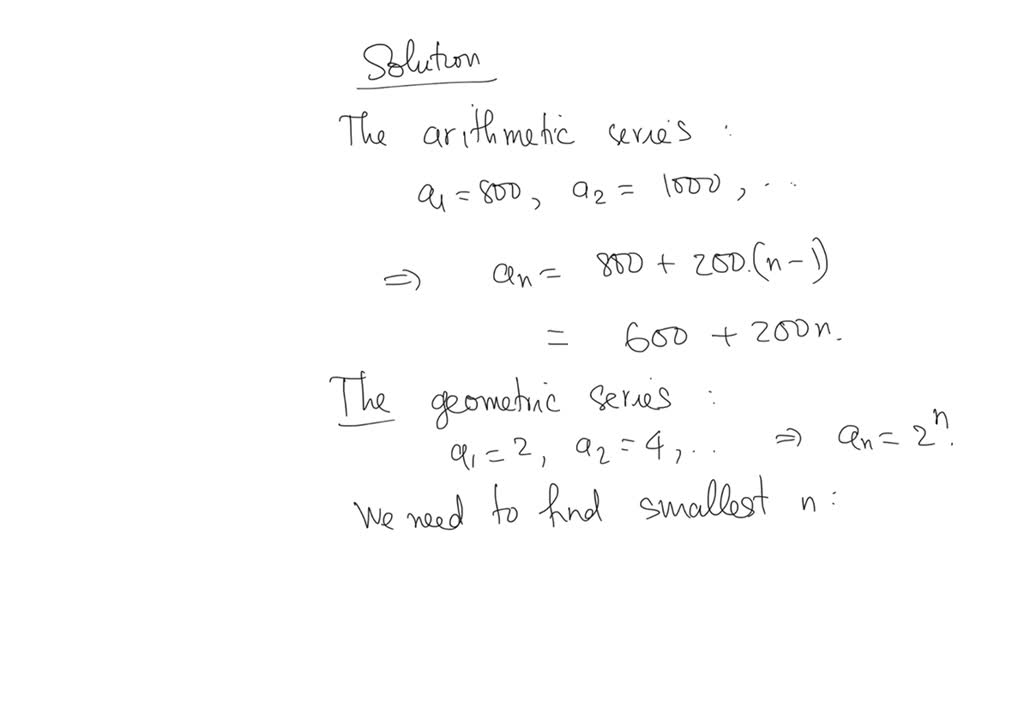 Solution
The arithmetic series :
a₁ = 800, a₂ = 1000, ...
⇒ aₙ = 800 + 200.(n-1)
= 600 + 200n.
The geometric series :
a₁ = 2, a₂ = 4, .. ⇒ aₙ = 2ⁿ.
We need to find smallest n :